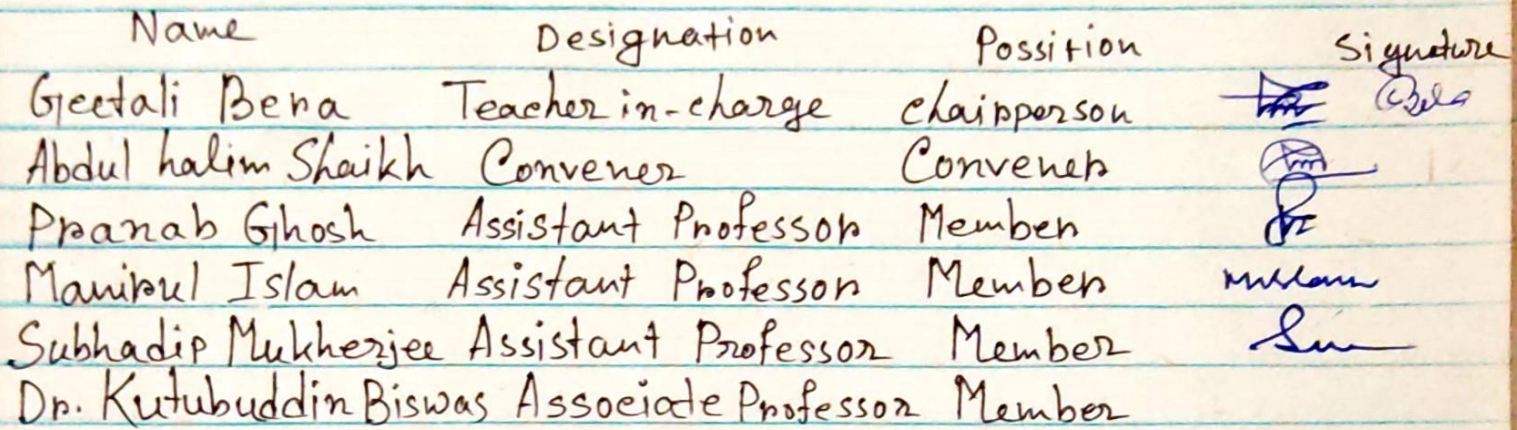 Name Designation Possition Signature
Geetali Bera Teacher in-charge chairperson
Abdul halim Shaikh Convener Convener
Pranab Ghosh Assistant Professor Member
Manirul Islam Assistant Professor Member
Subhadip Mukherjee Assistant Professor Member
Dr. Kutubuddin Biswas Associate Professor Member